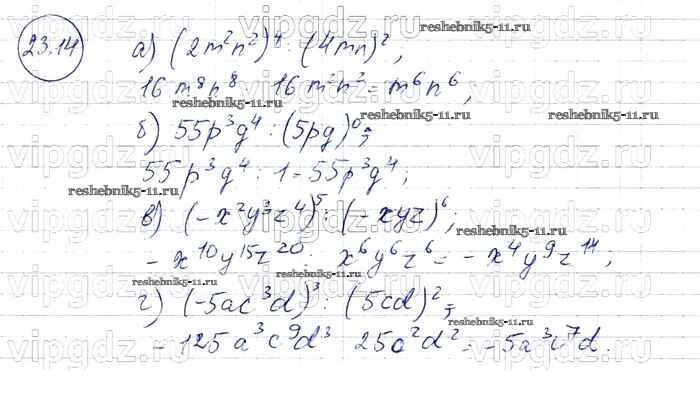 23.14
а) (2m²n²)⁴ : (4mn)²;
16 m⁸n⁸ 16 m²n² = m⁶n⁶,
б) 55p³g⁴ : (5pg)⁰;
55p³g⁴ : 1 = 55p³g⁴;
в) (-x²y³z⁴)⁵ : (-xyz)⁶;
- x¹⁰y¹⁵z²⁰ : x⁶y⁶z⁶ = - x⁴y⁹z¹⁴;
г) (-5ac³d)³ : (5cd)²;
- 125a³c⁹d³ 25c²d² = -5a³c⁷d.
vipgdz.ru
reshebnik5-11.ru